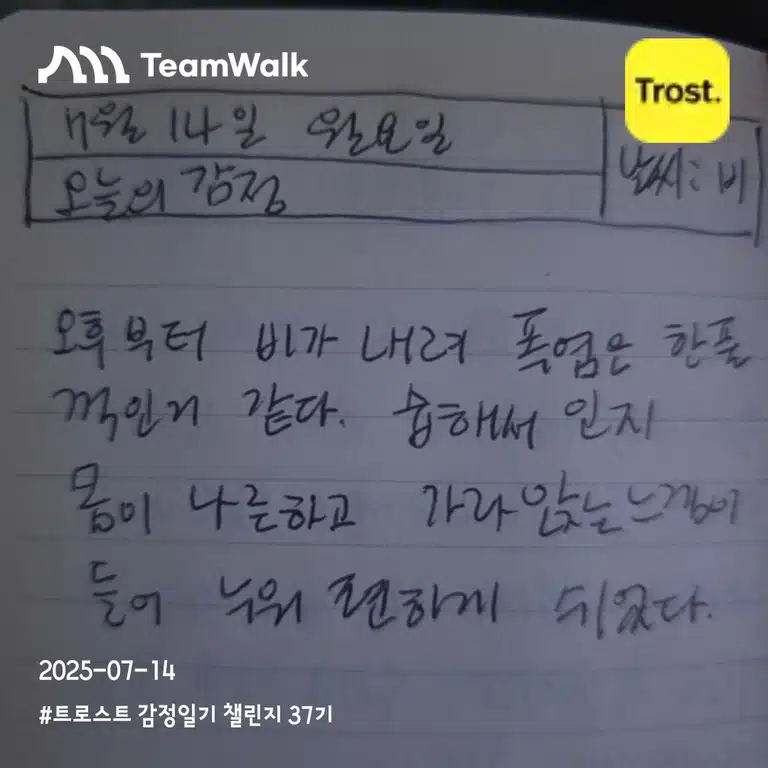 TeamWalk
Trost.
7월 14일 월요일
날씨: 비
오늘의 감정
오후부터 비가 내려 폭염은 한풀
꺽인거 같다. 습해써 인지
몸이 나른하고 가라앉는느낌이
들어 누워 편하게 쉬었다.
2025-07-14
#트로스트 감정일기 챌린지 37기